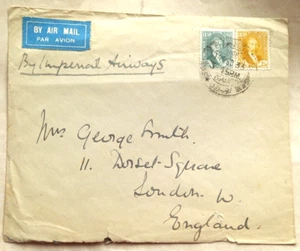 BY AIR MAIL
PAR AVION
By Imperial Airways
Mrs George Smith.
11. Dorset-Square
London. W.
England.